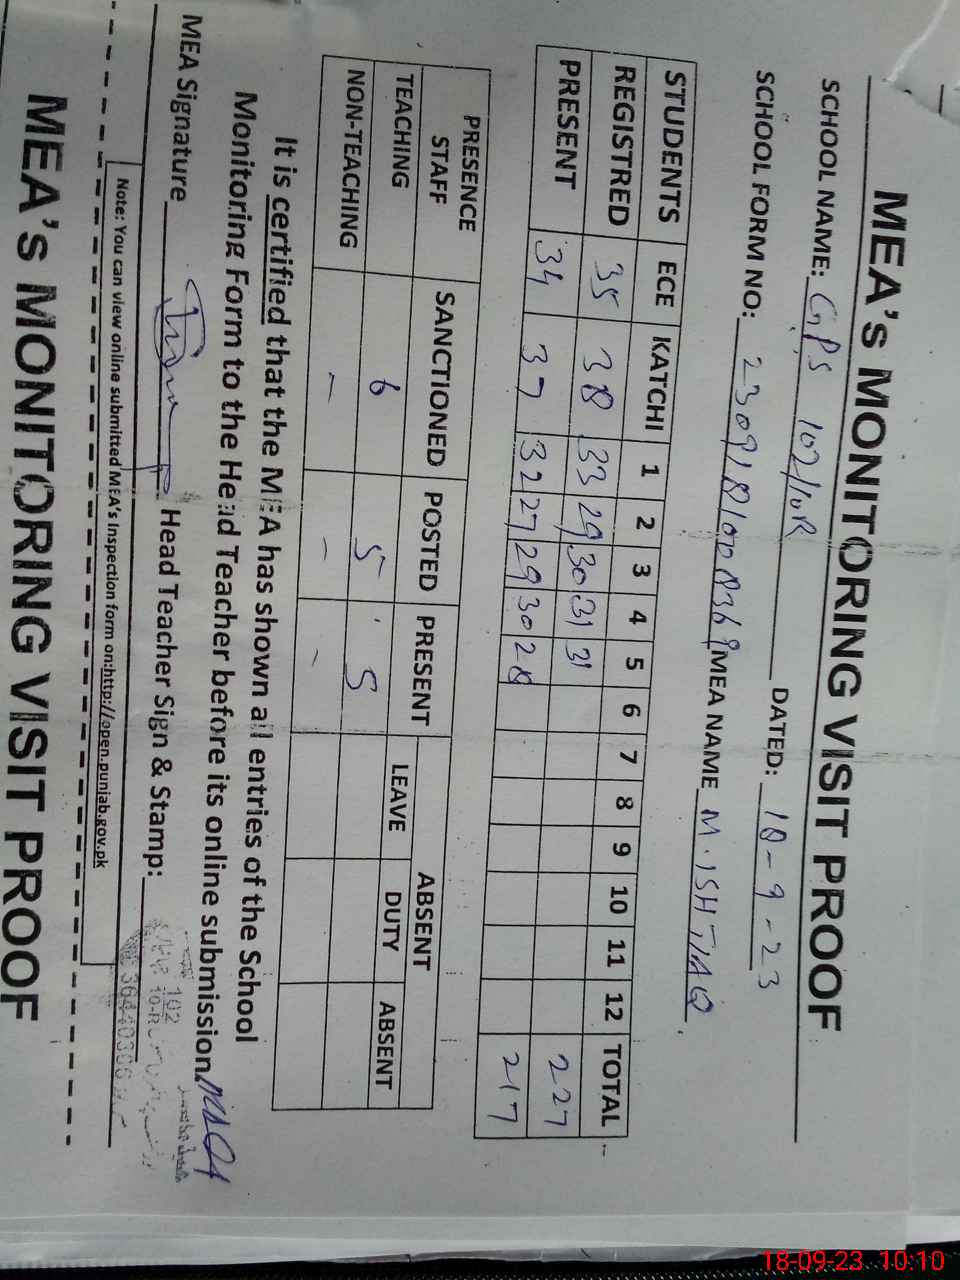 MEA's MONITORING VISIT PROOF
SCHOOL NAME: G.P.S 102/10R DATED: 18-9-23
SCHOOL FORM NO: MEA NAME M. ISHTIAQ
STUDENTS ECE KATCHI 1 2 3 4 5 6 7 8 9 10 11 12 TOTAL
REGISTRED 35 38 33 29 30 31 31 227
PRESENT 34 37 32 27 29 30 28 217
PRESENCE STAFF SANCTIONED POSTED PRESENT ABSENT
LEAVE DUTY ABSENT
TEACHING 6 5 5
NON-TEACHING - - -
It is certified that the MEA has shown all entries of the School
Monitoring Form to the Head Teacher before its online submission
MEA Signature Head Teacher Sign & Stamp:
102
10-R
Note: You can view online submitted MEA's Inspection form on:http://open.punjab.gov.pk
MEA's MONITORING VISIT PROOF
18-09-23 10:10